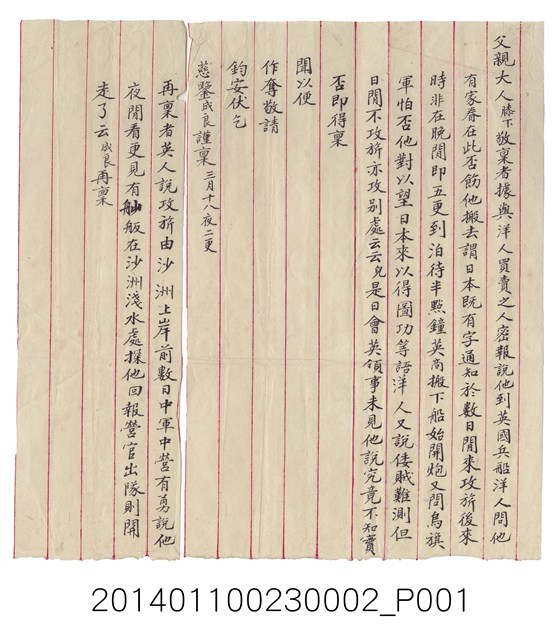 父親大人膝下敬稟者據與洋人買賣之人密報說他到英國兵船洋人問他
有家眷在此否飭他搬去謂日本既有字通知於數日間來攻旂後來
時非在晚間即五更到泊待半點鐘英商搬下船始開炮又問烏旗
軍怕否他對以望日本來以得圖功等語洋人又說倭賊難測但
日間不攻旂亦攻別處云云兒是日會英領事未見他說究竟不知實
否即得稟
聞以便
作奪敬請
鈞安伏乞
慈鑒成良謹稟 三月十八夜二更
再稟者英人說攻旂由沙洲上岸前數日中軍中營有勇說他
夜間看更見有舢舨在沙洲淺水處探他回報營官出隊則開
走了云成良再稟
201401100230002_P001